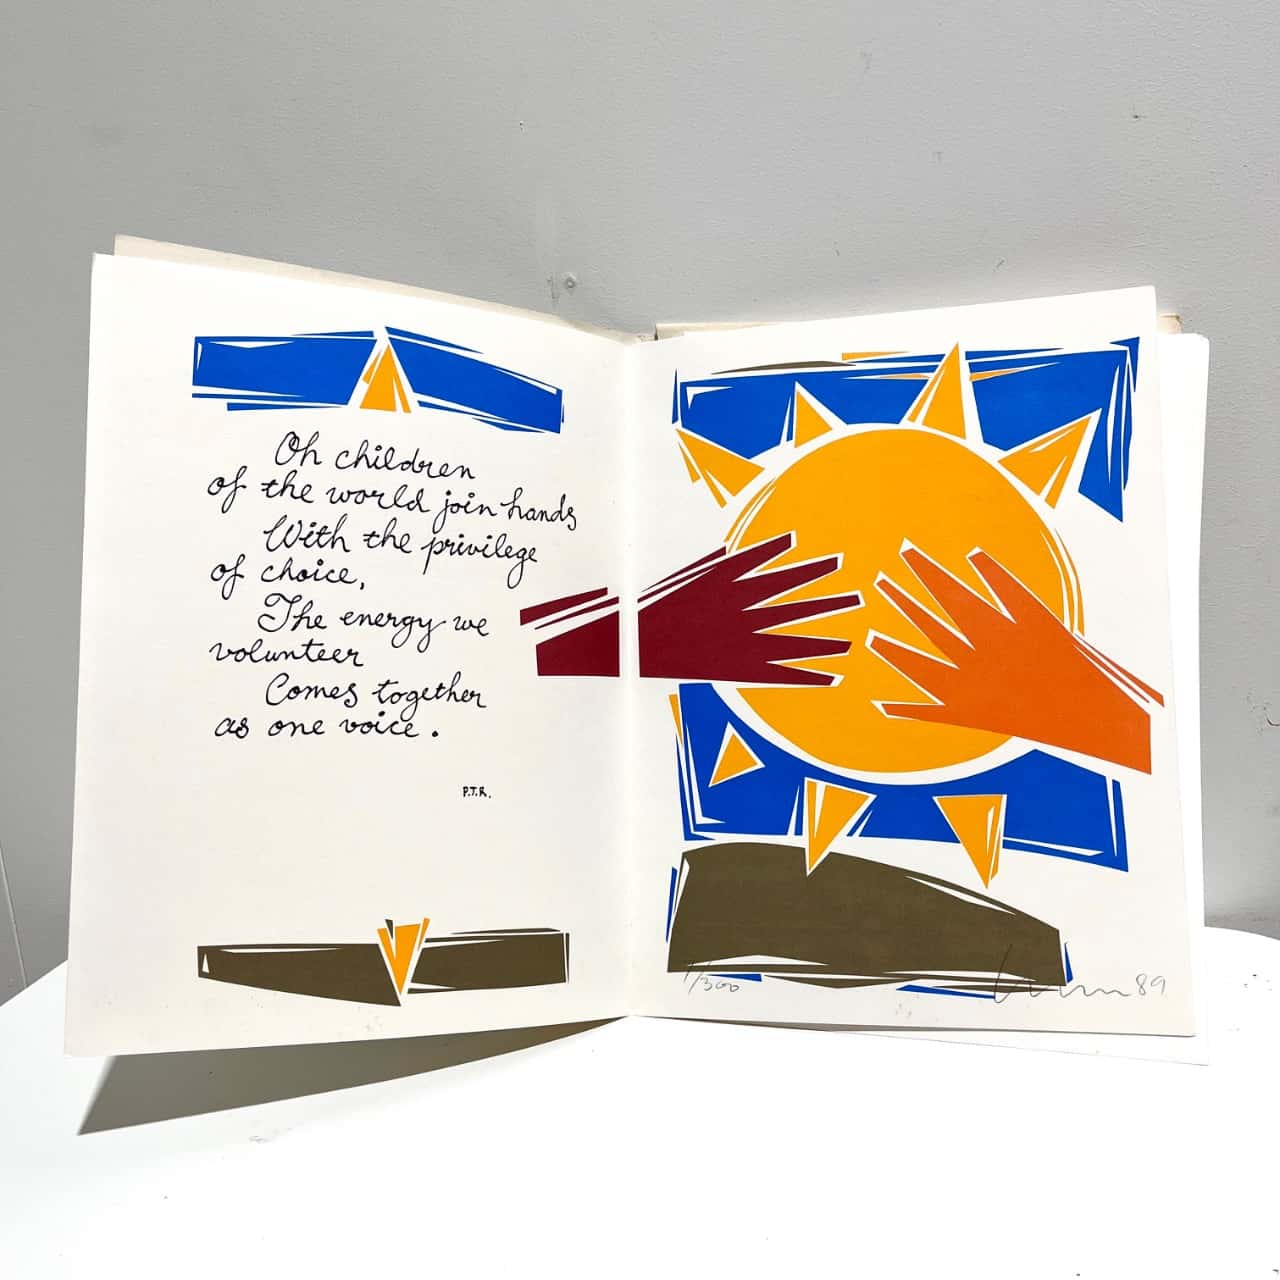 Oh children
of the world join hands
With the privilege
of choice,
The energy we
volunteer
Comes together
as one voice.
P.T.R.
1/300
89